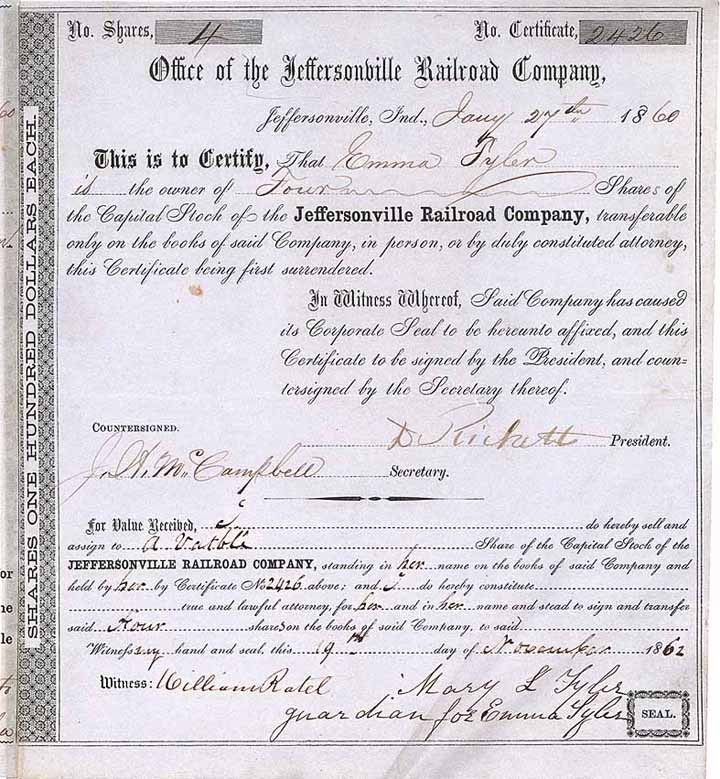 No. Shares, 4 No. Certificate, 2426
Office of the Jeffersonville Railroad Company,
Jeffersonville, Ind., Jany 27th 1860
This is to Certify, That Emma Tyler
is the owner of Four Shares of
the Capital Stock of the Jeffersonville Railroad Company, transferable
only on the books of said Company, in person, or by duly constituted attorney,
this Certificate being first surrendered.
In Witness Whereof, Said Company has caused
its Corporate Seal to be hereunto affixed, and this
Certificate to be signed by the President, and coun-
tersigned by the Secretary thereof.
COUNTERSIGNED.
D Ricketts President.
J. H. McCampbell Secretary.
For Value Received, I do hereby sell and
assign to Share of the Capital Stock of the
JEFFERSONVILLE RAILROAD COMPANY, standing in her name on the books of said Company and
held by her by Certificate No 2426 above; and I do hereby constitute
true and lawful attorney, for her and in her name and stead to sign and transfer
said Four shares on the books of said Company, to said
Witness my hand and seal, this 19th day of November 1862
Witness: William Mary L Tyler
guardian for Emma Tyler SEAL.
SHARES ONE HUNDRED DOLLARS EACH.